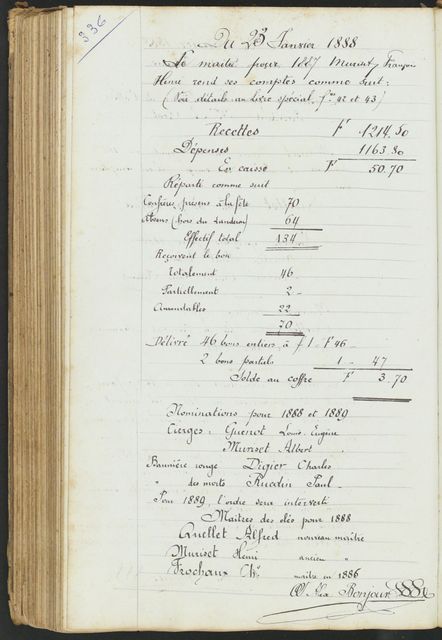 336
Du 23 Janvier 1888
Le maître pour 1887 Muriset François
Henri rend ses comptes comme suit:
(Voir détails au livre spécial fos 42 et 43)
Recettes F 1214.50
Dépenses 1163.80
En caisse F 50.70
Réparti comme suit
Confrères présens à la fête 70
Absens (hors du Landeron) 64
Effectif total 134
Reçoivent le bon
Totalement 46
Partiellement 2
Amendables 22
70
Délivré 46 bons entiers à f 1 F 46
2 bons partiels 1 - 47
Solde au coffre F 3.70
Nominations pour 1888 et 1889
Cierges: Guenot Louis Eugène
Muriset Albert
Bannière rouge Digier Charles
" des morts Ruedin Paul
Pour 1889, l'ordre sera interverti
Maîtres des clés pour 1888
Quellet Alfred nouveau maître
Muriset Henri ancien "
Frochaux Ch. maître en 1886
Bonjour